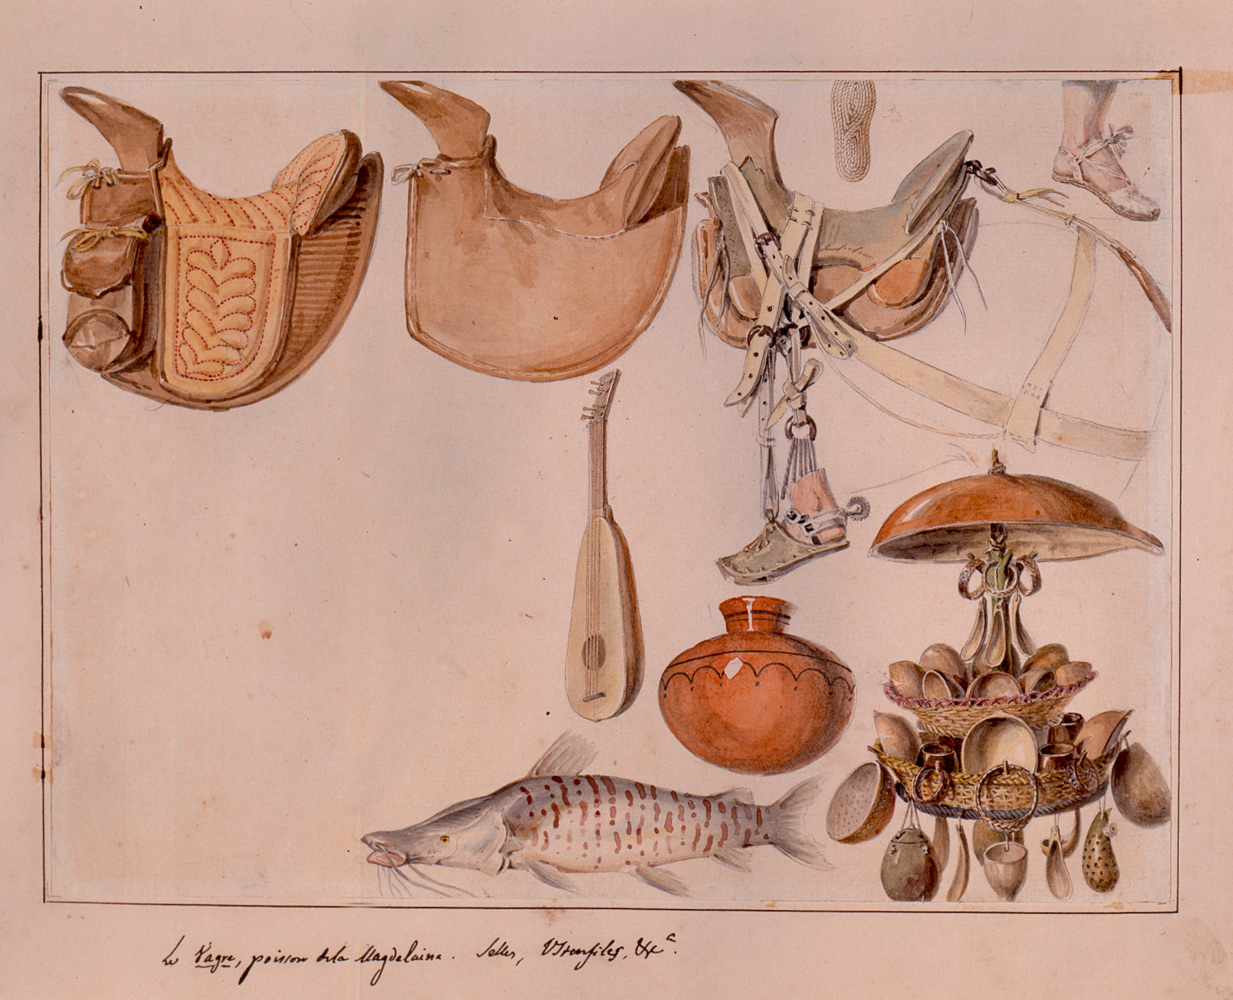 Le Vagre, poisson de la Magdelaina. Selles, Ustensiles, &c<sup>a</sup>.